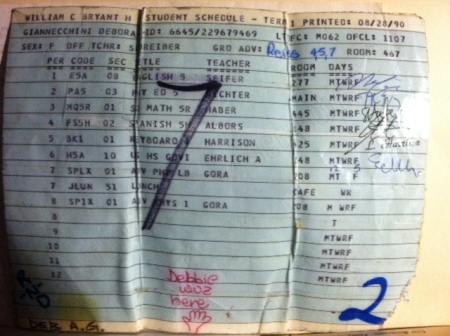 WILLIAM C BRYANT H STUDENT SCHEDULE - TERM 1 PRINTED: 08/28/90
GIANNECCHINI DEBORA ID: 6645/229679469 M062 OFCL: 1107
SEX: F OFF TCHR: SCREIBER GRD ADV: 457 ROOM: 467
PER CODE SEC TITLE TEACHER ROOM DAYS
1 E5A 08 GLISH 5 277 MTWRF
2 PA5 03 ED 5 MAIN MTWRF
3 MQ5R 01 MATH 5R HABER 445 MTWRF
4 FS5H 02 SPANISH 5H ALBORS MTWRF
5 BK1 01 KEYBOARD HARRISON 425 MTWRF
6 H5A 10 US HS GOVI EHRLICH A MTWRF
7 SPLX 01 LB GORA
7 JLUN 51 LUNCH CAFE WK
8 SP1X 01 GORA M WRF
9 T
10 MTWRF
11 MTWRF
12 MTWRF
MTWRF
7
Debbie
woz
here
2
DEB A.G.